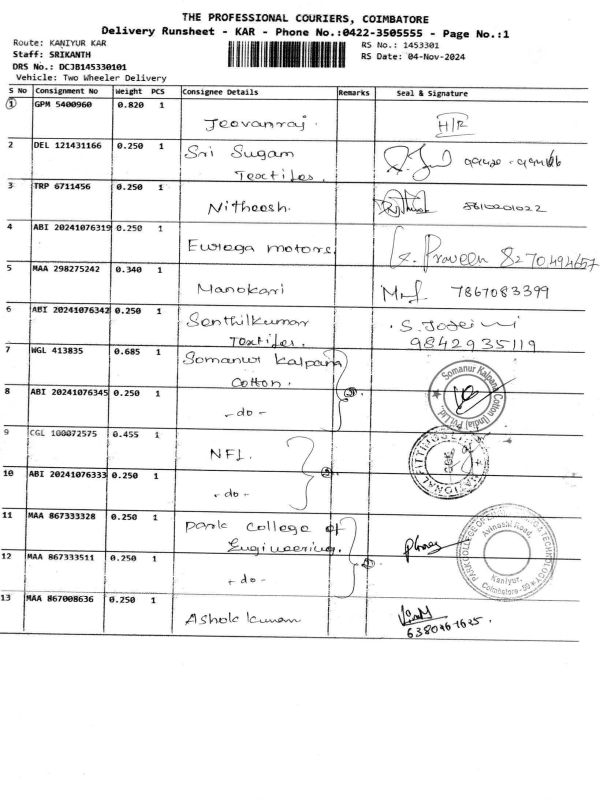 THE PROFESSIONAL COURIERS, COIMBATORE
Delivery Runsheet - KAR - Phone No.:0422-3505555 - Page No.:1
Route: KANIYUR KAR
RS No.: 1453301
Staff: SRIKANTH
RS Date: 04-Nov-2024
DRS No.: DCJB145330101
Vehicle: Two Wheeler Delivery
S No Consignment No Weight PCS Consignee Details Remarks Seal & Signature
1 GPM 5400960 0.820 1 Jeevanraj. H/R
2 DEL 121431166 0.250 1 Sri Sugam
Textiles.
3 TRP 6711456 0.250 1 Nitheesh.
4 ABI 20241076319 0.250 1 Praveen 8270494657
motors.
5 MAA 298275242 0.340 1 Manokari 7867083399
6 ABI 20241076342 0.250 1 Senthilkumar
Textiles. 9842935119
7 WGL 413835 0.685 1 Somanur Kalpana
Cotton. Somanur Kalpana Cotton (India) Pvt Ltd.
8 ABI 20241076345 0.250 1 - do -
9 CGL 100072575 0.455 1 NFI.
10 ABI 20241076333 0.250 1 - do -
11 MAA 867333328 0.250 1 Park College of
Engineering.
12 MAA 867333511 0.250 1 - do -
Avinashi Road,
Kaniyur,
Coimbatore
13 MAA 867008636 0.250 1 Ashok kumar